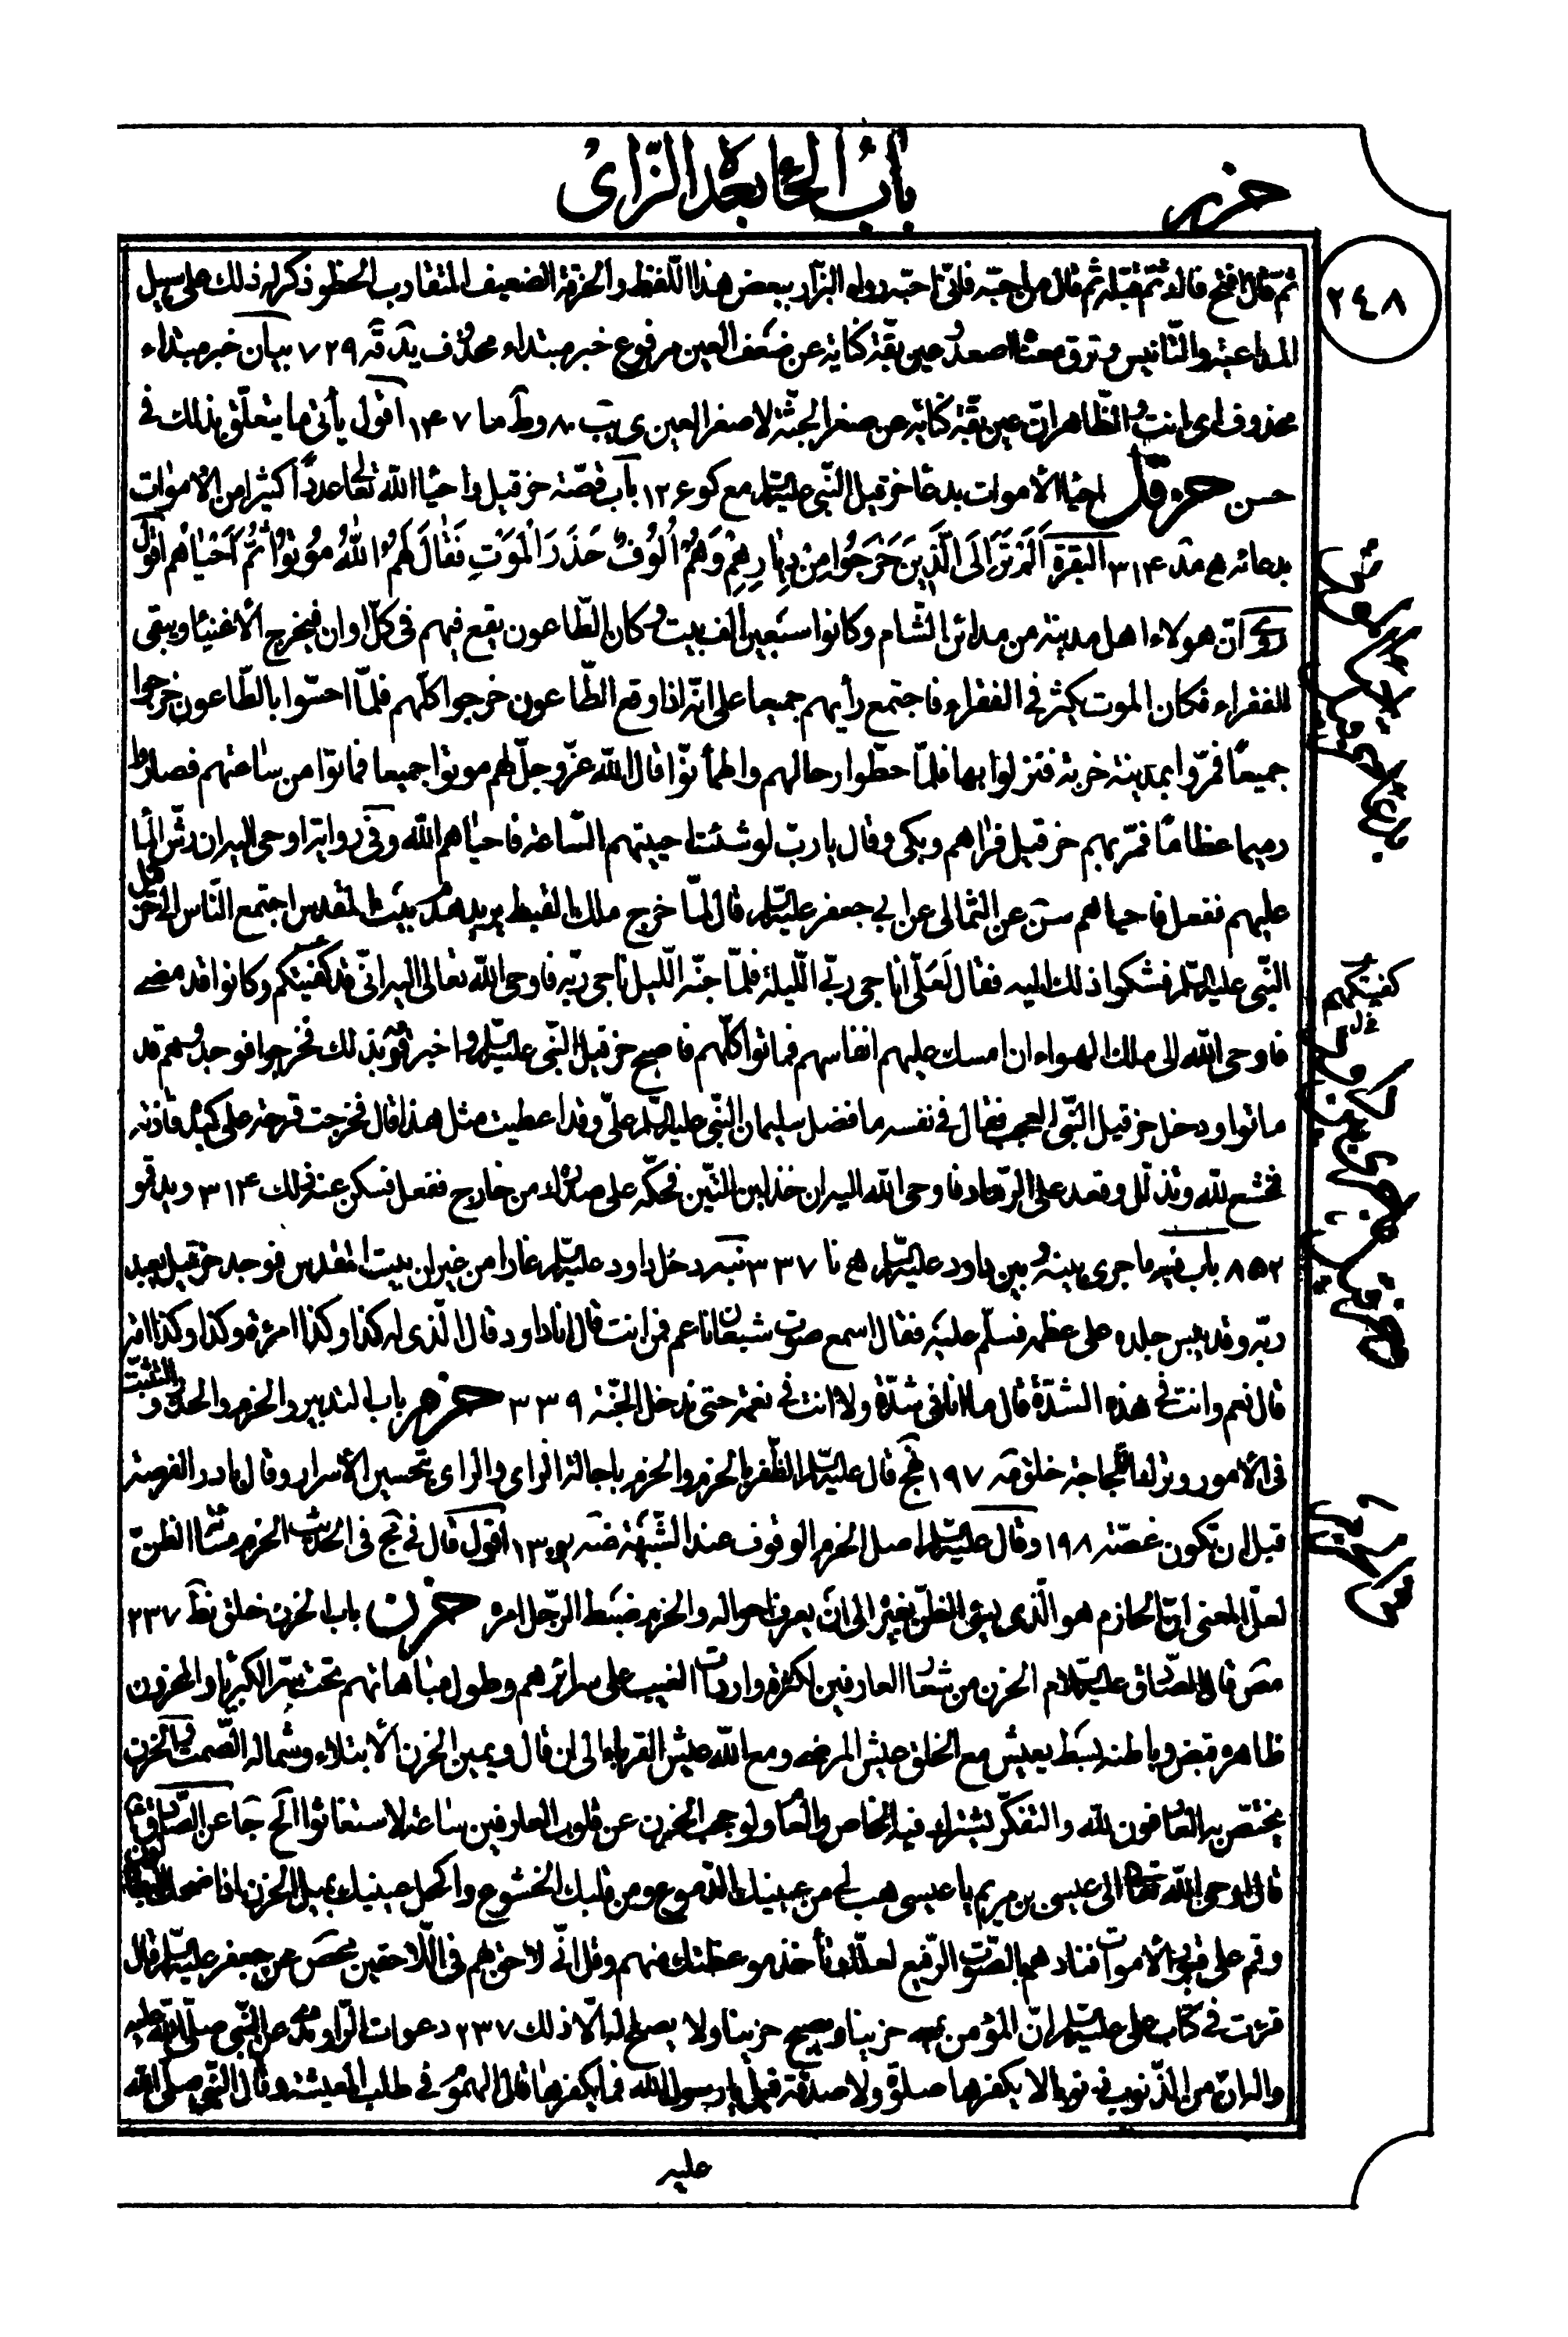 باب الحاء بعد الزاى
حزبر
٢٤٨
ثمّ قال افتح فاك ثمّ قبّله ثم قال من احبّه فانّى احبّه رواه البزّار ببعض هذا اللّفظ والحزقّة الضعيف المتقارب الخطو ذكر له ذلك على سبيل
المداعبة والتّانيس وترق معناه اصعد وعين بقّة كناية عن ضعف العين مرفوع خبر مبتداء محذوف يد قه ٧٢٩ بيان خبر مبتداء
محذوف اى انت والظّاهر انّ عين بقّة كناية عن صغر الجثّة لا صغر العين ى يب ٨٠ وط ما ١٤٧ اقول يأتى ما يتعلّق بذلك فى
حسن حزقل احياء الأموات بدعاء حزقيل النّبى عليه السّلم مع كو ١٢٦ باب قصّة حزقيل واحياء الله تعالى عددًا كثيرا من الاموات
بدعائه ع مد ٣١٤ البقرة اَلَمْ تَرَ اِلَى الَّذِينَ خَرَجُوا مِنْ دِيارِهِمْ وَهُمْ اُلُوفٌ حَذَرَ الْمَوْتِ فَقالَ لَهُمُ اللهُ مُوتُوا ثُمَّ اَحْياهُم اقول
روى انّ هولاء اهل مدينة من مدائن الشام وكانوا سبعين الف بيت وكان الطّاعون يقع فيهم فى كلّ اوان فيخرج الأغنياء ويبقى
الفقراء فكان الموت يكثر فى الفقراء فاجتمع رأيهم جميعا على انّه اذا وقع الطّاعون خرجوا كلّهم فلمّا احسّوا بالطّاعون خرجوا
جميعًا فمرّوا بمدينة خربة فنزلوا بها فلمّا حطّوا رحالهم واطمأنّوا قال الله عزّ وجلّ لهم موتوا جميعا فماتوا من ساعتهم فصاروا
رميما عظاما فمرّ بهم حزقيل فرآهم وبكى وقال يا ربّ لو شئت احييتهم السّاعة فاحياهم الله وفى رواية اوحى اليه ان رشّ الماء
عليهم ففعل فاحياهم سن عن الثمالى عن ابى جعفر عليه السّلم قال لمّا خرج ملك القبط يريد هدم بيت المقدس اجتمع النّاس الى حزقيل
النّبى عليه السّلم فشكوا ذلك اليه فقال لعلّى اناجى ربّى اللّيلة فلمّا جنّه اللّيل ناجى ربّه فاوحى الله تعالى اليه انّى قد كفيتكم وكانوا قد مضوا
فاوحى الله الى ملك الهواء ان امسك عليهم انفاسهم فماتوا كلّهم فاصبح حزقيل النّبى عليه السّلم واخبر قومه بذلك فخرجوا فوجدوهم قد
ماتوا ودخل حزقيل النّبى العجب فقال فى نفسه ما فضل سليمان النّبى عليه السّلم علىّ وقد اعطيت مثل هذا قال فخرجت قرحة على كبده فآذته
فخشع لله وتذلّل وقعد على الرّماد فاوحى الله اليه ان خذ لبن التّين فحكّه على صدرك من خارج ففعل فسكن عنه ذلك ٣١٤ ويد قو
٨٥٢ باب فيه ما جرى بينه وبين داود عليه السّلم ع نا ٣٣٧ نبه دخل داود عليه السّلم غارا من غيران بيت المقدس فوجد حزقيل يعبد
ربّه وقد يبس جلده على عظمه فسلّم عليه فقال اسمع صوت شبعان ناعم فمن انت قال انا داود قال الّذى له كذا وكذا امرئة وكذا وكذا امة
قال نعم وانت فى هذه الشدّة قال ما انا فى شدّة ولا انت فى نعمة حتى ندخل الجنّة ٣٣٩ حزم باب التدبير والحزم والحذر والتثبّت
فى الأمور وترك اللّجاجة خلق مه ١٩٧ نهج قال عليه السّلم الظّفر بالحزم والحزم باجالة الراى والراى بتحصين الأسرار وقال بادر الفرصة
قبل ان تكون غصّة ١٩٨ وقال عليه السّلم اصل الحزم الوقوف عند الشّبهة ضه يو ١٣٠ اقول قال فى مج فى الحديث الحزم مسائة الظنّ
لعلّ المعنى انّ الحازم هو الّذى يسئ الظنّ بغيره الى ان يعرف احواله والحزم ضبط الرّجل امره حزن باب الحزن خلق نط ٢٣٧
مص قال الصّادق عليه السّلام الحزن من شعار العارفين لكثرة واردات الغيب على سرائرهم وطول مباهاتهم تحت ستر الكبرياء والمحزون
ظاهره قبض وباطنه بسط يعيش مع الخلق عيش المرضى ومع الله عيش القربى الى ان قال ويمين الحزن الأبتلاء وشماله الصّمت والحزن
يختصّ به العارفون لله والتفكّر يشترك فيه الخاص والعامّ ولو حجب الحزن عن قلوب العارفين ساعة لاستغاثوا الخ جا عن الصّادق ع
قال اوحى الله تعالى الى عيسى بن مريم يا عيسى هب لى من عينيك الدّموع ومن قلبك الخشوع واكحل عينيك بميل الحزن اذا ضحك البطالون
وقم على قبور الأموات فنادهم بالصّوت الرّفيع لعلّك تأخذ موعظتك منهم وقل انّى لاحق بهم فى اللّاحقين محص عن جعفر عليه السّلم قال
قرئت فى كتاب على عليه السّلم انّ المؤمن يمسى حزينا ويصبح حزينا ولا يصلح له الّا ذلك ٢٣٧ دعوات الرّاوندى عن النّبى صلّى الله عليه
واله انّ من الذّنوب ذنوبا لا يكفرها صلوة ولا صدقة قيل يا رسول الله فما يكفرها قال الهموم فى طلب المعيشة وقال النّبى صلّى الله
عليه
كفيتكهم
خ ل